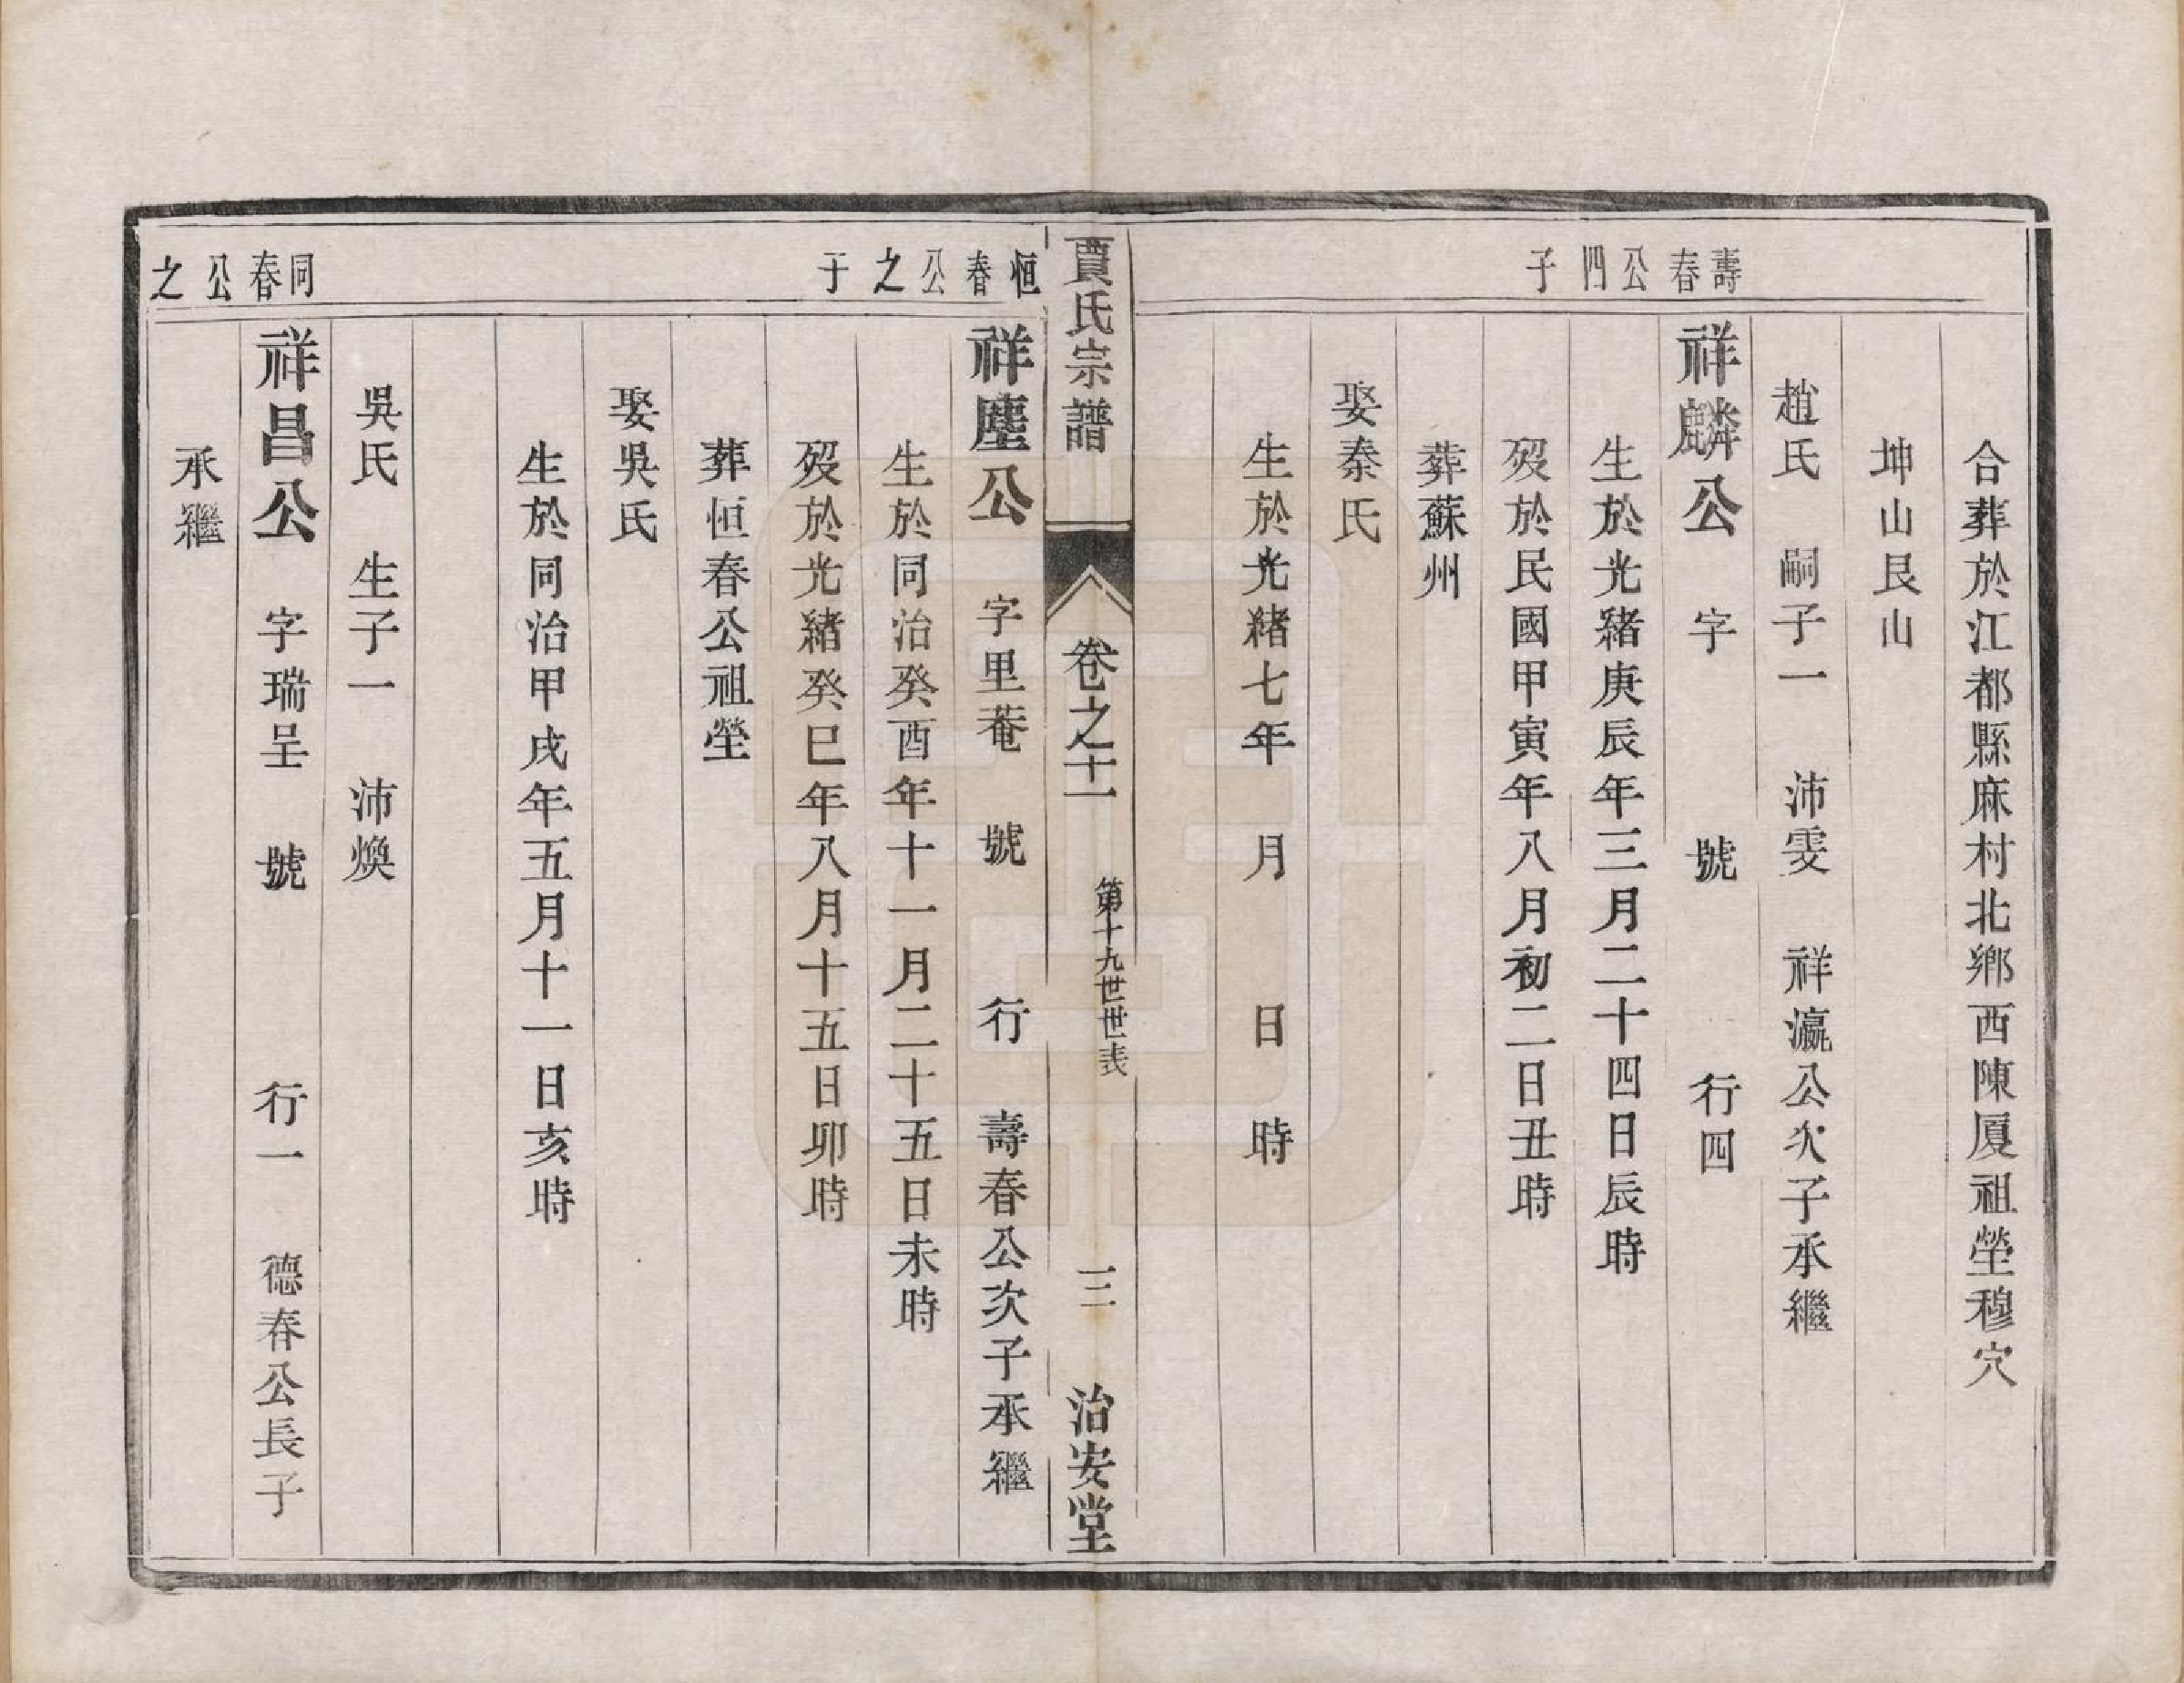 壽春公四子
合葬於江都縣麻村北鄉西陳厦祖塋穆穴
坤山艮山
趙氏　嗣子一　沛雯　祥瀛公次子承繼
祥麟公　字　號　行四
生於光緒庚辰年三月二十四日辰時
歿於民國甲寅年八月初二日丑時
葬蘇州
娶秦氏
生於光緒七年　月　日　時
賈氏宗譜　卷之十一　第十九世世表　三　治安堂
恒春公之子
祥麈公　字里菴　號　行　壽春公次子承繼
生於同治癸酉年十一月二十五日未時
歿於光緒癸巳年八月十五日卯時
葬恒春公祖塋
娶吳氏
生於同治甲戌年五月十一日亥時
吳氏　生子一　沛煥
同春公之
祥昌公　字瑞呈　號　行一　德春公長子
承繼